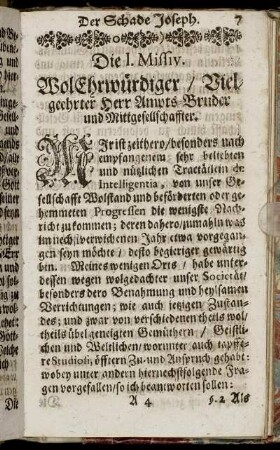 Der Schade Joseph. 7
Die I. Missiv.
WolEhrwürdiger / Viel-
geehrter Herr Ampts-Bruder
und Mittgesellschaffter.
MIr ist zeithero / besonders nach
empfangenem sehr beliebten
und nützlichen Tractätlein de
Intelligentia, von unser Ge-
sellschafft Wolstand und beförderten oder ge-
hemmeten Progressen die wenigste Nach-
richt zukommen; deren dahero / zumahln was
im nechstverwichenen Jahr etwa vorgegan-
gen seyn möchte / desto begieriger gewärtig
bin. Meines wenigen Orts / habe unter-
dessen wegen wolgedachter unser Societät /
besonders dero Benahmung und heylsamen
Verrichtungen; wie auch jetzigen Zustan-
des; und zwar von verschiedenen theils wol /
theils übel geneigten Gemüthern / Geistli-
chen und Weltlichen / worunter auch tapffe-
re Studiosi, öfftern Zu- und Anspruch gehabt:
wobey unter andern hiernechstfolgende Fra-
gen vorgefallen / so ich beantworten sollen:
A 4 §. 2. Als
Die